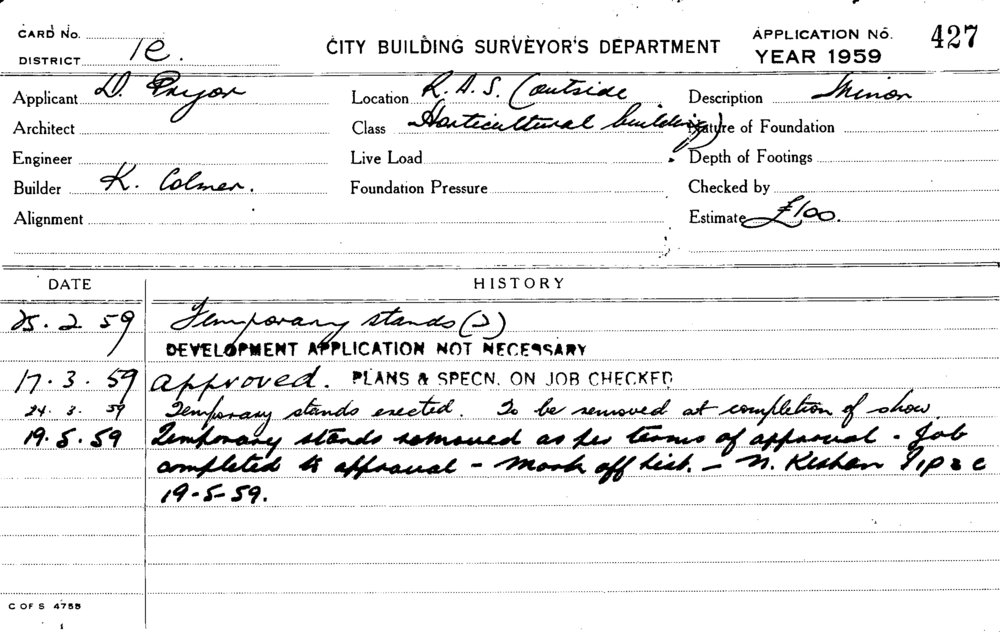 CARD No.
DISTRICT 1C.
CITY BUILDING SURVEYOR'S DEPARTMENT
APPLICATION No. 427
YEAR 1959
Applicant D. Pryor
Location R.A.S. (outside
Description Minor
Architect
Class Horticultural building)
Nature of Foundation
Engineer
Live Load
Depth of Footings
Builder K. Colmer.
Foundation Pressure
Checked by
Alignment
Estimate £100.
DATE
HISTORY
25.2.59 Temporary stands (2)
DEVELOPMENT APPLICATION NOT NECESSARY
17.3.59 approved. PLANS & SPECN. ON JOB CHECKED
24.3.59 Temporary stands erected. To be removed at completion of show.
19.5.59 Temporary stands removed as per terms of approval - Job
completed to approval - Mark off list. - N.
19-5-59.
C OF S 4755